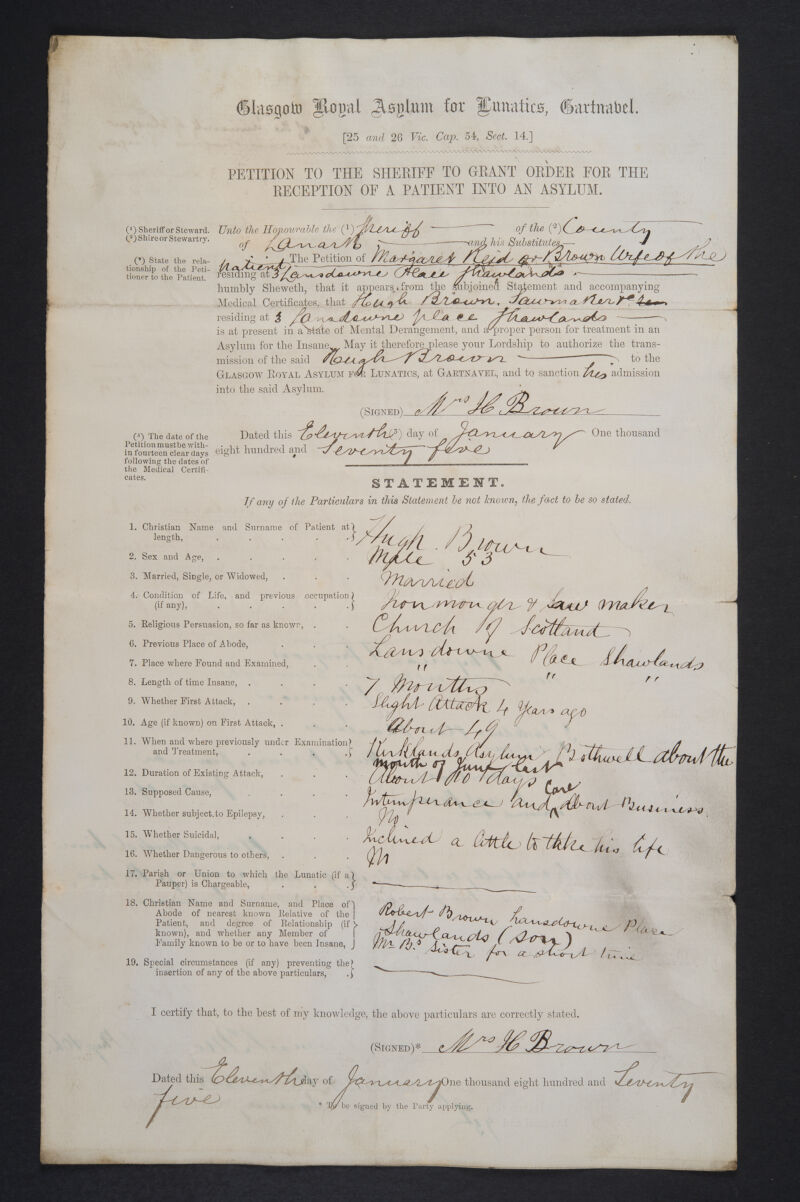 Glasgow Royal Asylum for Lunatics, Gartnabel.
[25 and 26 Vic. Cap. 54, Sect. 14.]
PETITION TO THE SHERIFF TO GRANT ORDER FOR THE
RECEPTION OF A PATIENT INTO AN ASYLUM.
(¹) Sheriff or Steward.
(²) Shire or Stewartry.
(³) State the rela-
tionship of the Peti-
tioner to the Patient.
Unto the Honourable the (¹) Sheriff of the (²) County
of Lanark and his Substitutes
The Petition of Margaret Reid or Brown Wife of the
patient
residing at 3 Lansdowne Place Shawlands
humbly Sheweth, that it appears from the subjoined Statement and accompanying
Medical Certificates, that Hugh Brown, Sawmaker &c
residing at 3 Lansdowne place Shawlands
is at present in a state of Mental Derangement, and a proper person for treatment in an
Asylum for the Insane. May it therefore please your Lordship to authorize the trans-
mission of the said Hugh Brown to the
GLASGOW ROYAL ASYLUM FOR LUNATICS, at GARTNAVEL, and to sanction his admission
into the said Asylum.
(SIGNED) Mrs H Brown
(⁴) The date of the
Petition must be with-
in fourteen clear days
following the dates of
the Medical Certifi-
cates.
Dated this Eleventh day of January One thousand
eight hundred and Seventy five
STATEMENT.
If any of the Particulars in this Statement be not known, the fact to be so stated.
1. Christian Name and Surname of Patient at
length, Hugh Brown
2. Sex and Age, Male 53
3. Married, Single, or Widowed, Married
4. Condition of Life, and previous occupation
(if any), Ironmonger & Saw maker
5. Religious Persuasion, so far as known, Church of Scotland
6. Previous Place of Abode, Lansdowne Place Shawlands
7. Place where Found and Examined, " " "
8. Length of time Insane, 7 Months
9. Whether First Attack, Slight Attack 4 Years ago
10. Age (if known) on First Attack, About 49
11. When and where previously under Examination
and Treatment, Kirklands Asylum Bothwell about the
month of June last
12. Duration of Existing Attack, About 10 days
13. Supposed Cause, Intemperance and Care about Business.
14. Whether subject to Epilepsy, No
15. Whether Suicidal, Inclined a little to take his life
16. Whether Dangerous to others, No
17. Parish or Union to which the Lunatic (if a
Pauper) is Chargeable,
18. Christian Name and Surname, and Place of
Abode of nearest known Relative of the
Patient, and degree of Relationship (if
known), and whether any Member of
Family known to be or to have been Insane,
Robert Brown Lansdowne Place
Shawlands (Son)
Mr B.s Sister for a short time
19. Special circumstances (if any) preventing the
insertion of any of the above particulars,
I certify that, to the best of my knowledge, the above particulars are correctly stated.
(SIGNED)* Mrs H Brown
Dated this Eleventh day of January One thousand eight hundred and Seventy
five
* To be signed by the Party applying.